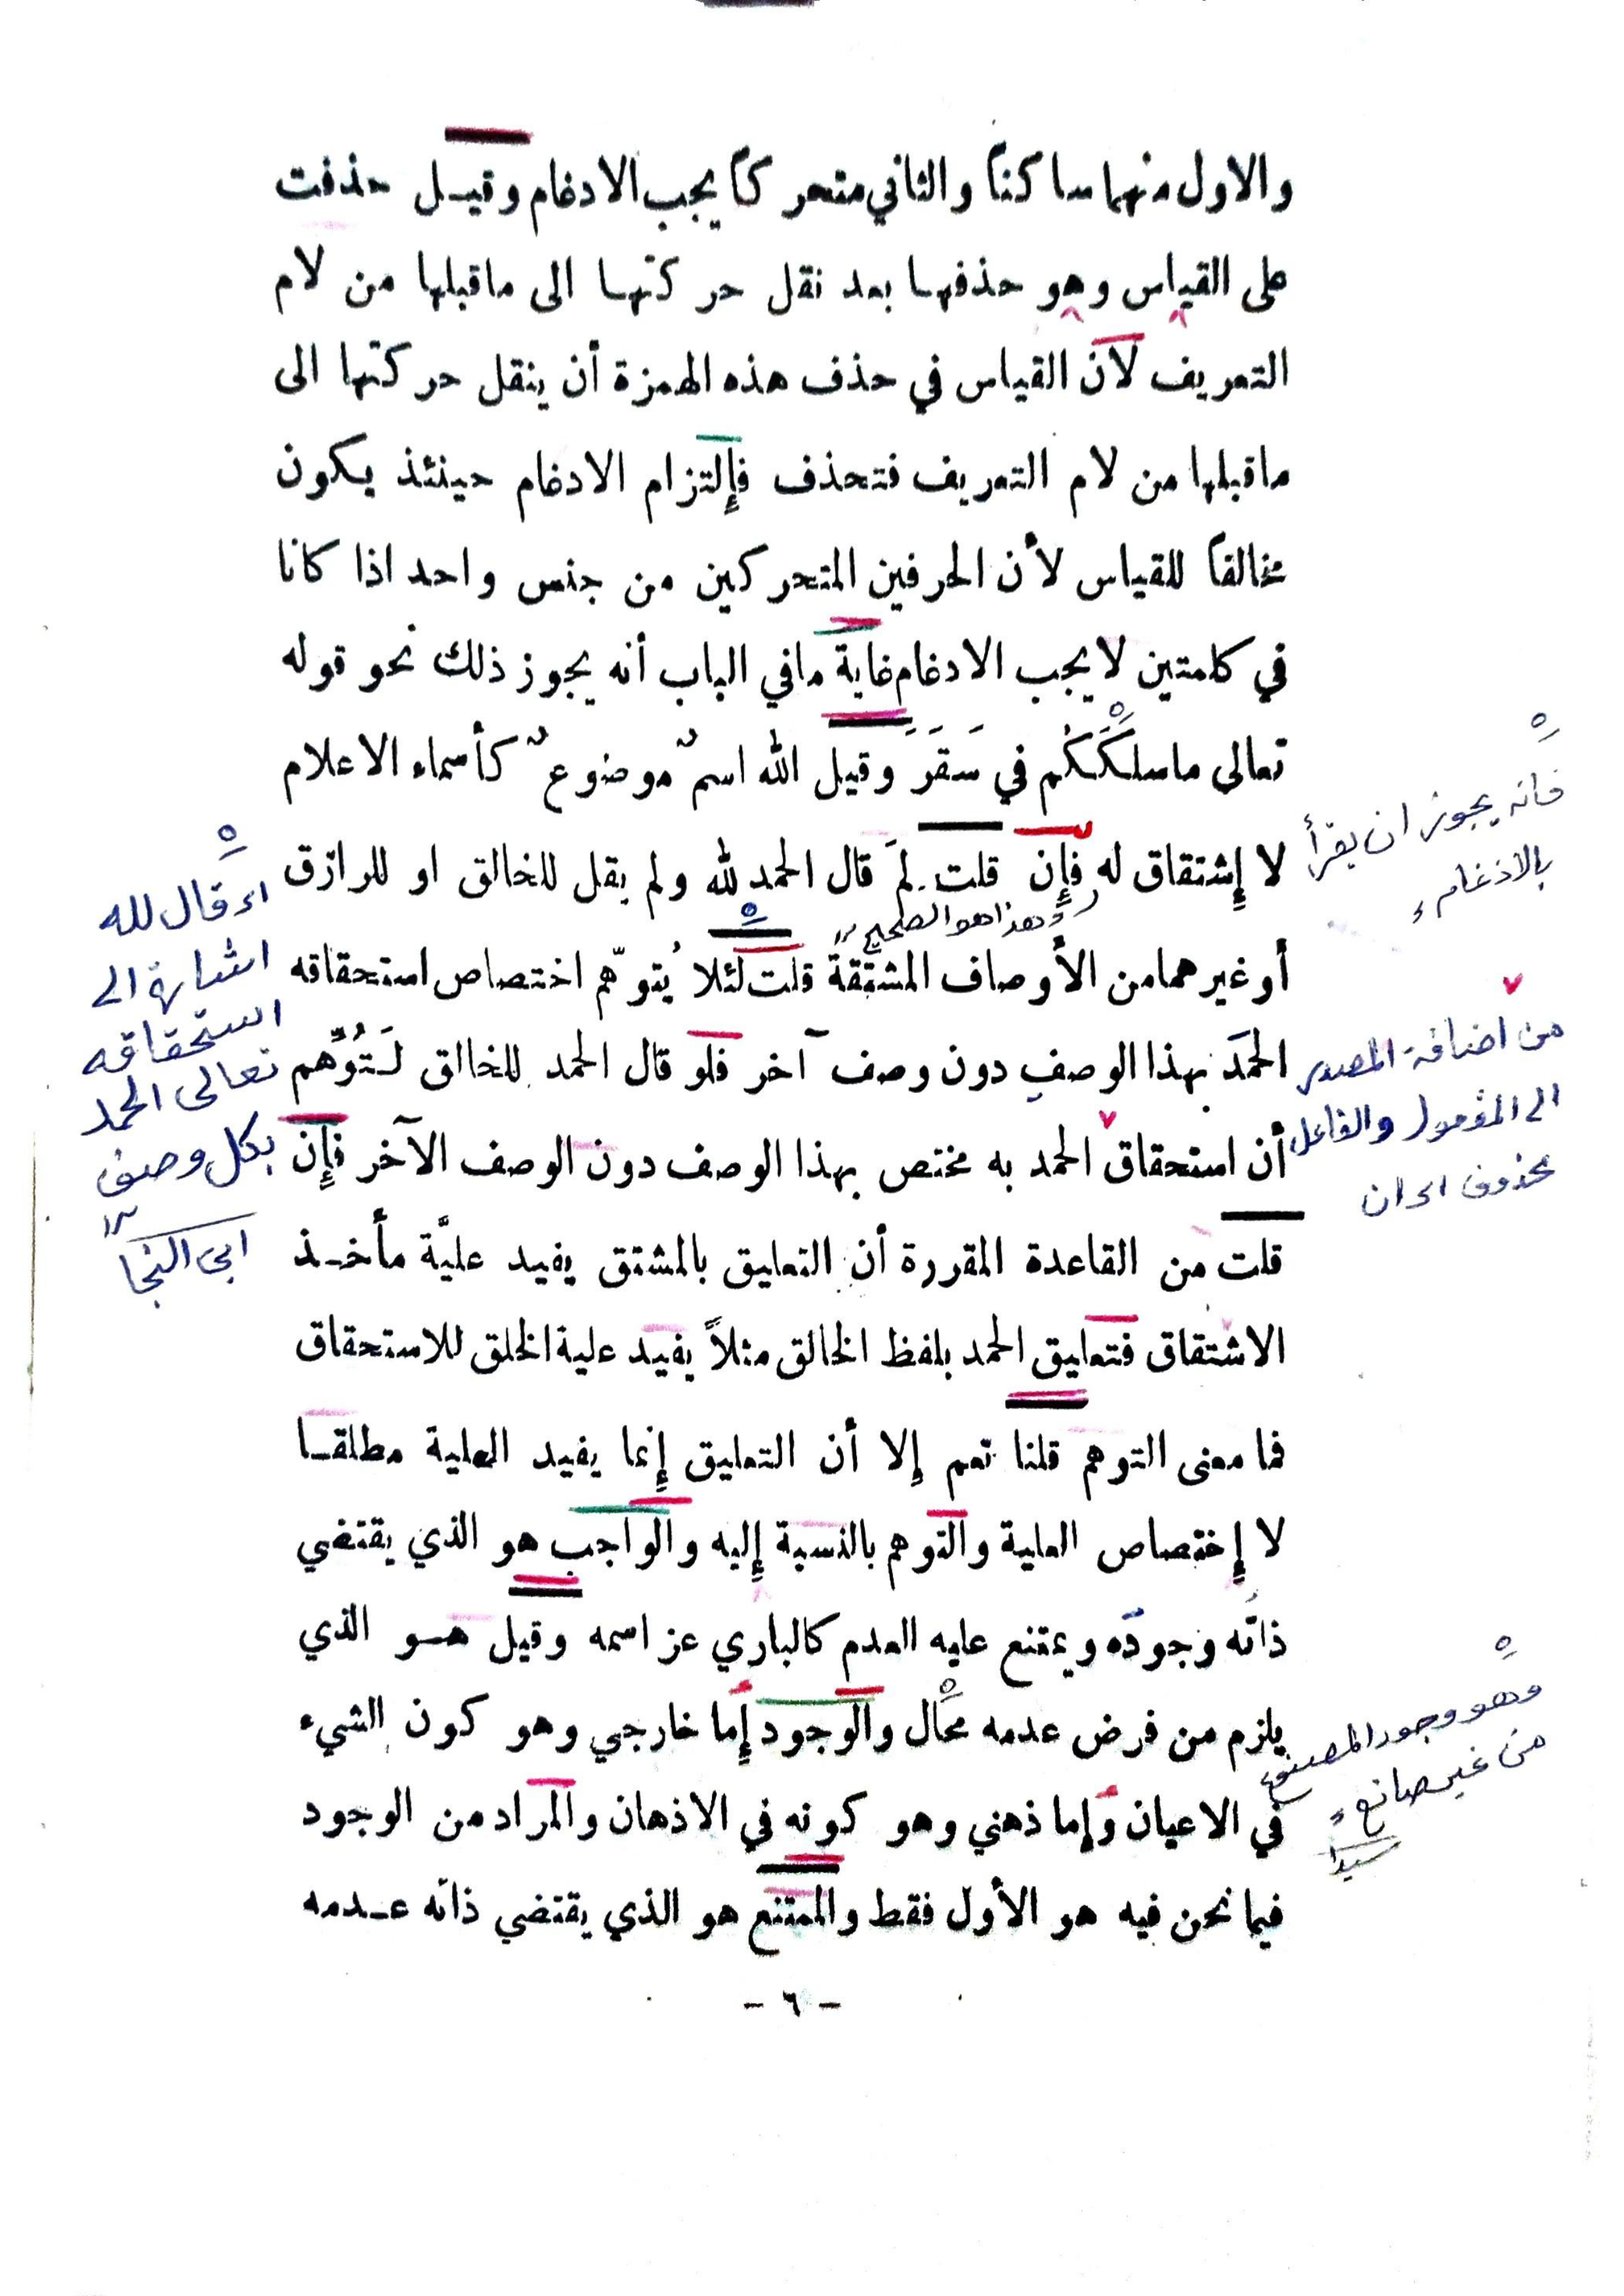 والاول منهما ساكناً والثاني متحركاً يجب الادغام وقيل حذفت
على القياس وهو حذفها بعد نقل حركتها الى ماقبلها من لام
التعريف لأن القياس في حذف هذه الهمزة أن ينقل حركتها الى
ماقبلها من لام التعريف فتحذف فإلتزام الادغام حينئذ يكون
مخالفاً للقياس لأن الحرفين المتحركين من جنس واحد اذا كانا
في كلمتين لا يجب الادغام غاية مافي الباب أنه يجوز ذلك نحو قوله
تعالى ماسلككُم في سَقَرَ وقيل الله اسمٌ موضوعٌ كأسماء الاعلام
لا إشتقاق له فإن قلت لمَ قال الحمد لله ولم يقل للخالق او للرازق
وهذا هو الصحيح
أو غيرهما من الأوصاف المشتقة قلت لئلا يُتوهّم اختصاص استحقاقه
الحمَد بهذا الوصف دون وصف آخر فلو قال الحمد للخالق لَتُوُهِّم
أن استحقاق الحمد به مختص بهذا الوصف دون الوصف الآخر فإن
قلت من القاعدة المقررة أن التعليق بالمشتق يفيد عليَّة مأخـذ
الاشتقاق فتعليق الحمد بلفظ الخالق مثلاً يفيد علية الخلق للاستحقاق
فما معنى التوهم قلنا نعم إلا أن التعليق إنما يفيد العلية مطلقـا
لا إختصاص العلية والتوهم بالنسبة إليه والواجب هو الذي يقتضي
ذاته وجودَه ويمتنع عليه العدم كالباري عز اسمه وقيل هـو الذي
يلزم من فرض عدمه محال والوجود إما خارجي وهو كون الشيء
في الاعيان وإما ذهني وهو كونه في الاذهان والمراد من الوجود
فيما نحن فيه هو الأول فقط والممتنع هو الذي يقتضي ذاته عـدمه
- ٦ -
فانه يجوز ان يقرأ
بالادغام
من اضافة المصدر
الى المفعول والفاعل
محذوف
وهو وجود المصنوع
من غير صانع
سيدا
اى قال لله
اشارة الى
استحقاقه
تعالى الحمد
بكل وصف
ابى النجا